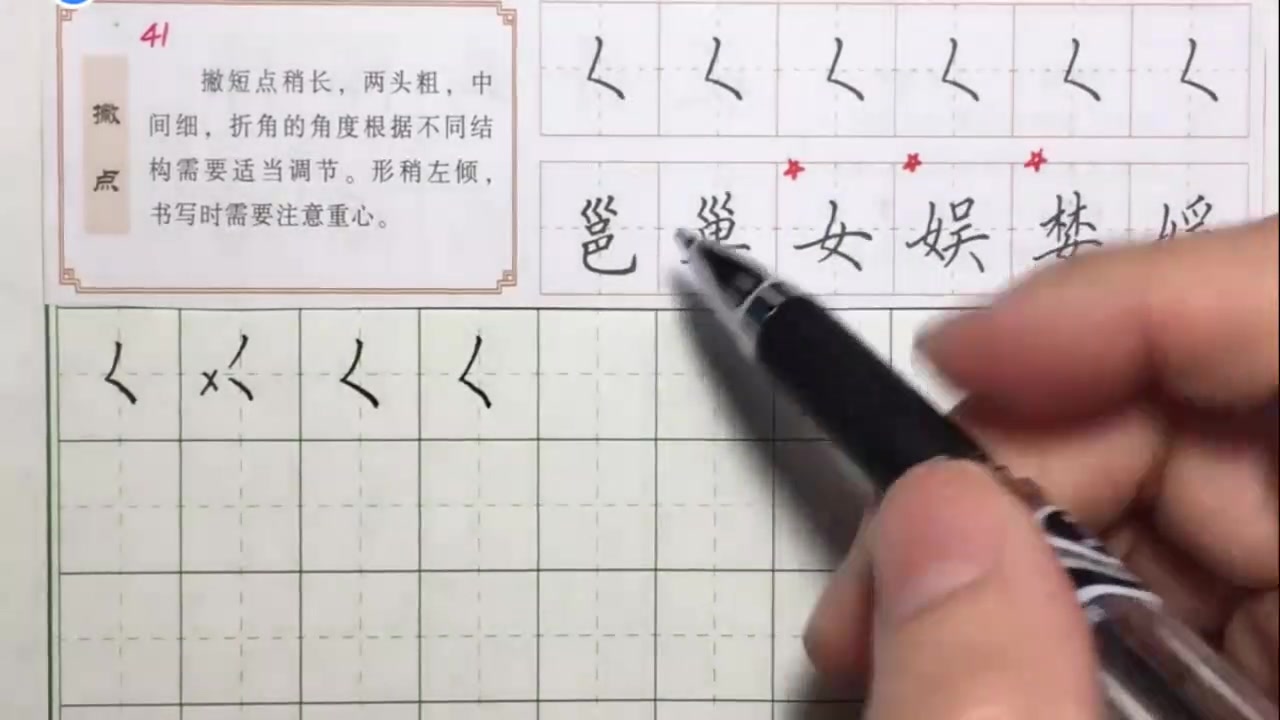 41
撇点
撇短点稍长，两头粗，中
间细，折角的角度根据不同结
构需要适当调节。形稍左倾，
书写时需要注意重心。
く く く く く く
邕 巢 女 娱 婪
く x く く く